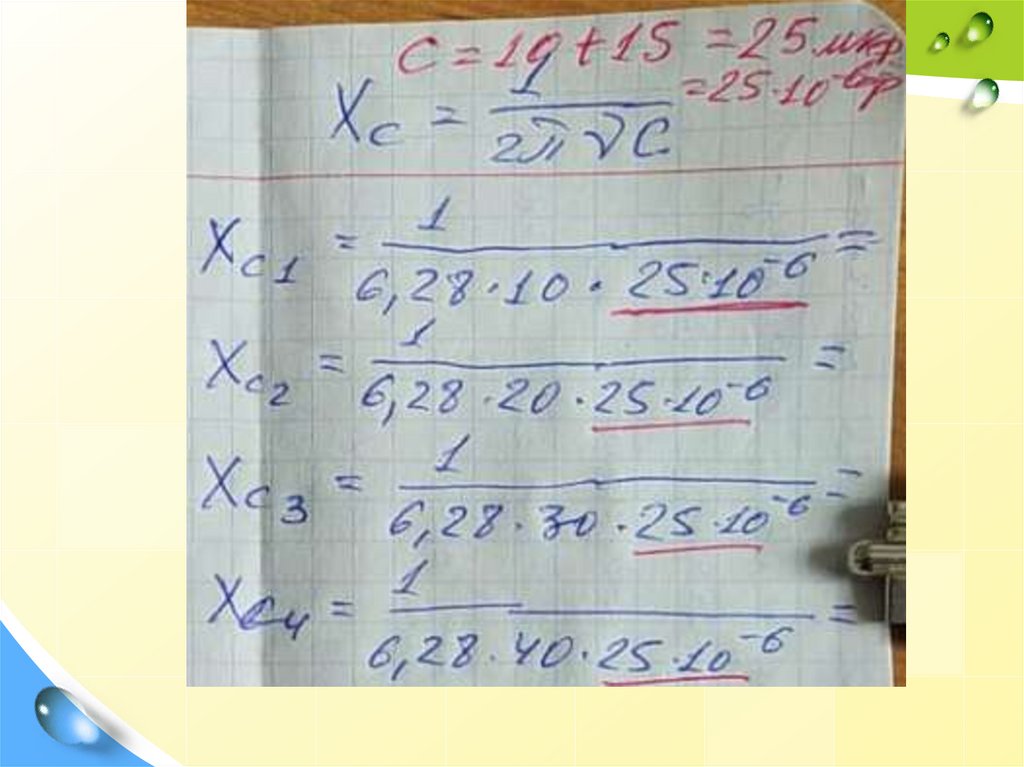 C = 10 + 15 = 25 мкф
= 25 · 10⁻⁶ф
Xc = 1 / 2π √ C
Xc1 = 1 / 6,28 · 10 · 25 · 10⁻⁶ =
Xc2 = 1 / 6,28 · 20 · 25 · 10⁻⁶ =
Xc3 = 1 / 6,28 · 30 · 25 · 10⁻⁶ =
Xc4 = 1 / 6,28 · 40 · 25 · 10⁻⁶ =